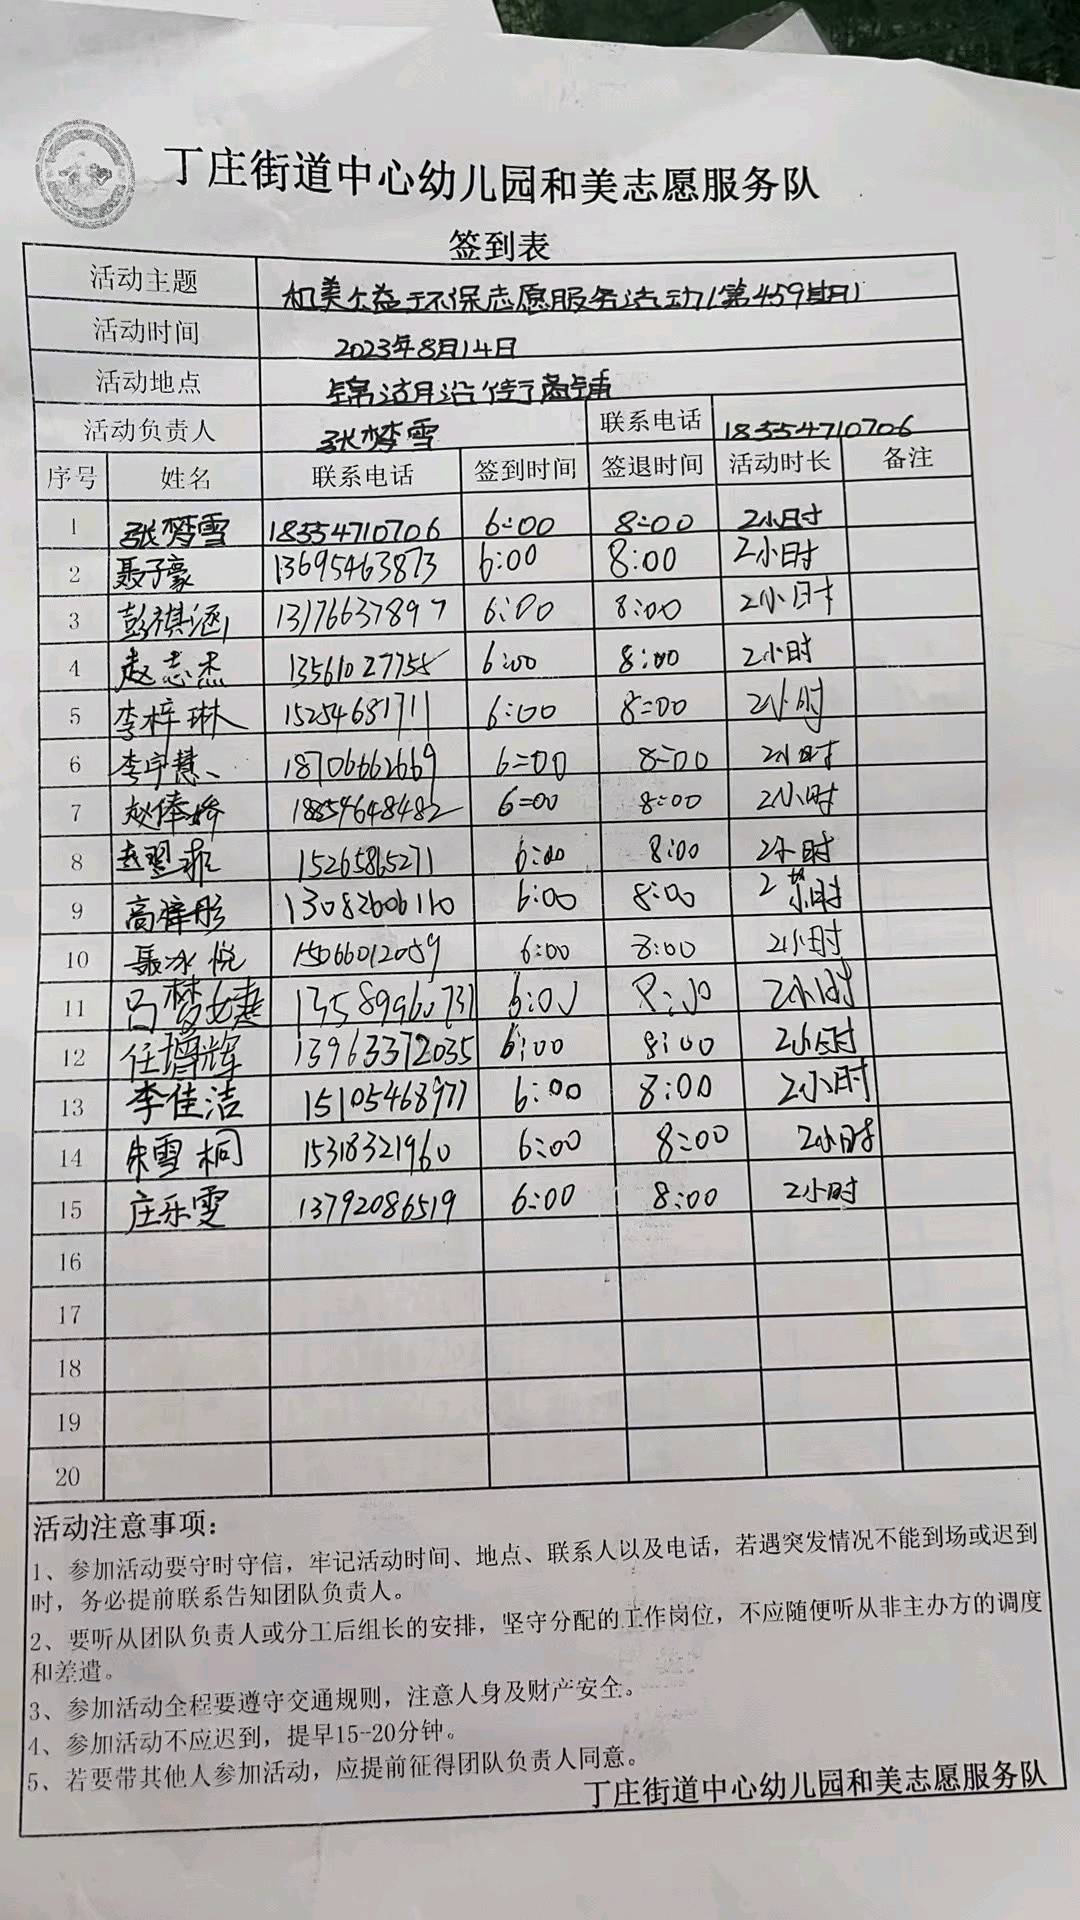 丁庄街道中心幼儿园和美志愿服务队
签到表
活动主题 和美公益环保志愿服务活动(第459期)
活动时间 2023年8月14日
活动地点 锦湖月沿街商铺
活动负责人 张梦雪 联系电话 18554710706
序号 姓名 联系电话 签到时间 签退时间 活动时长 备注
1 张梦雪 18554710706 6:00 8:00 2小时
2 聂子豪 13695463873 6:00 8:00 2小时
3 彭祺涵 13176637897 6:00 8:00 2小时
4 赵志杰 13561027755 6:00 8:00 2小时
5 李梓琳 15254681711 6:00 8:00 2小时
6 李宇慧 18706662669 6:00 8:00 2小时
7 18854648482 6:00 8:00 2小时
8 15265865271 6:00 8:00 2小时
9 高梓彤 13082606110 6:00 8:00 2小时
10 聂冰悦 15066012059 6:00 8:00 2小时
11 吕梦婕 13589960731 6:00 8:00 2小时
12 任增辉 13963372035 6:00 8:00 2小时
13 李佳洁 15105468977 6:00 8:00 2小时
14 朱雪桐 15318321960 6:00 8:00 2小时
15 庄乐雯 13792086519 6:00 8:00 2小时
16
17
18
19
20
活动注意事项:
1、参加活动要守时守信，牢记活动时间、地点、联系人以及电话，若遇突发情况不能到场或迟到
时，务必提前联系告知团队负责人。
2、要听从团队负责人或分工后组长的安排，坚守分配的工作岗位，不应随便听从非主办方的调度
和差遣。
3、参加活动全程要遵守交通规则，注意人身及财产安全。
4、参加活动不应迟到，提早15-20分钟。
5、若要带其他人参加活动，应提前征得团队负责人同意。
丁庄街道中心幼儿园和美志愿服务队